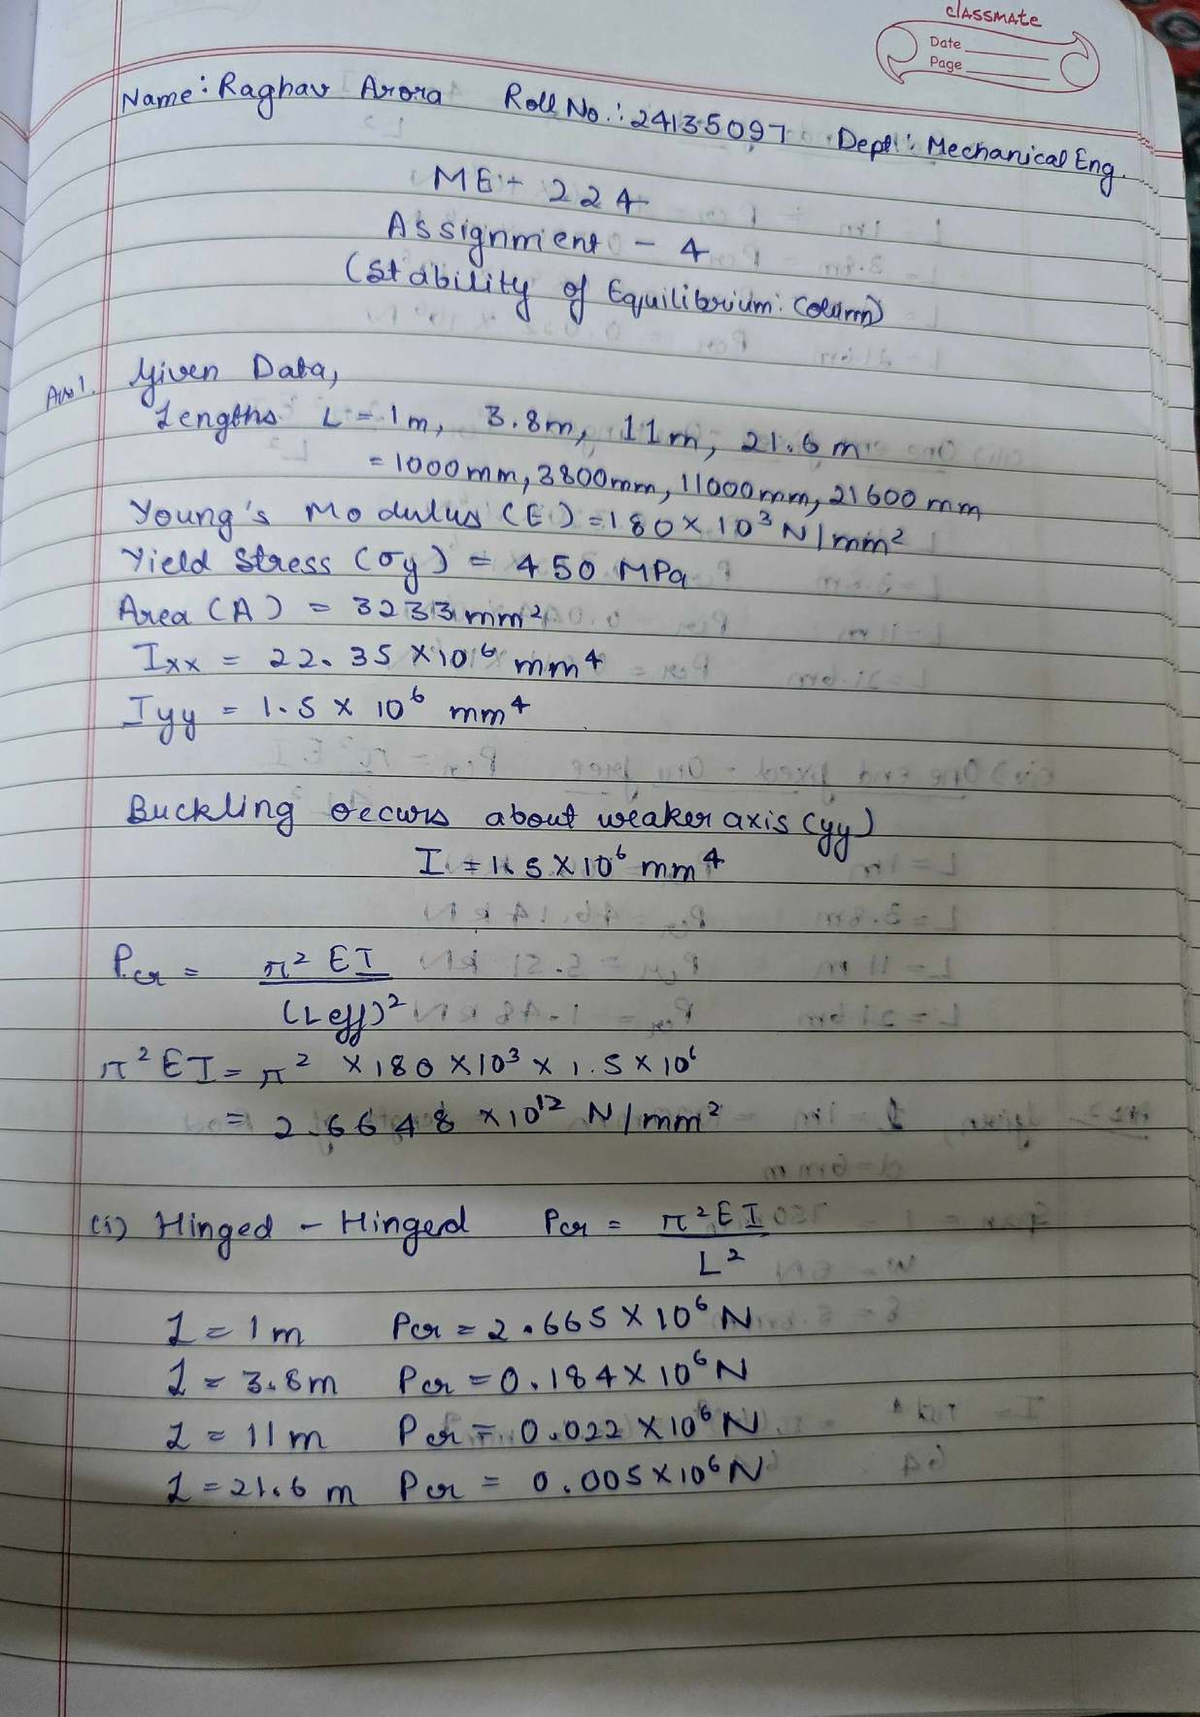 classmate
Date
Page
Name: Raghav Arora Roll No.: 24135097 Dept: Mechanical Eng.
ME - 224
Assignment - 4
(Stability of Equilibrium: Column)
Ans1. Given Data,
Lengths L = 1m, 3.8m, 11m, 21.6m
= 1000mm, 3800mm, 11000mm, 21600mm
Young's Modulus (E) = 180 × 10³ N/mm²
Yield Stress (σy) = 450 MPa
Area (A) = 3233 mm²
Ixx = 22.35 × 10⁶ mm⁴
Iyy = 1.5 × 10⁶ mm⁴
Buckling occurs about weaker axis (yy)
I = 1.5 × 10⁶ mm⁴
Pcr = π² EI / (Leff)²
π² EI = π² × 180 × 10³ × 1.5 × 10⁶
= 2.6648 × 10¹² N/mm²
(i) Hinged - Hinged Pcr = π² EI / L²
L = 1m Pcr = 2.665 × 10⁶ N
L = 3.8m Pcr = 0.184 × 10⁶ N
L = 11m Pcr = 0.022 × 10⁶ N
L = 21.6 m Pcr = 0.005 × 10⁶ N